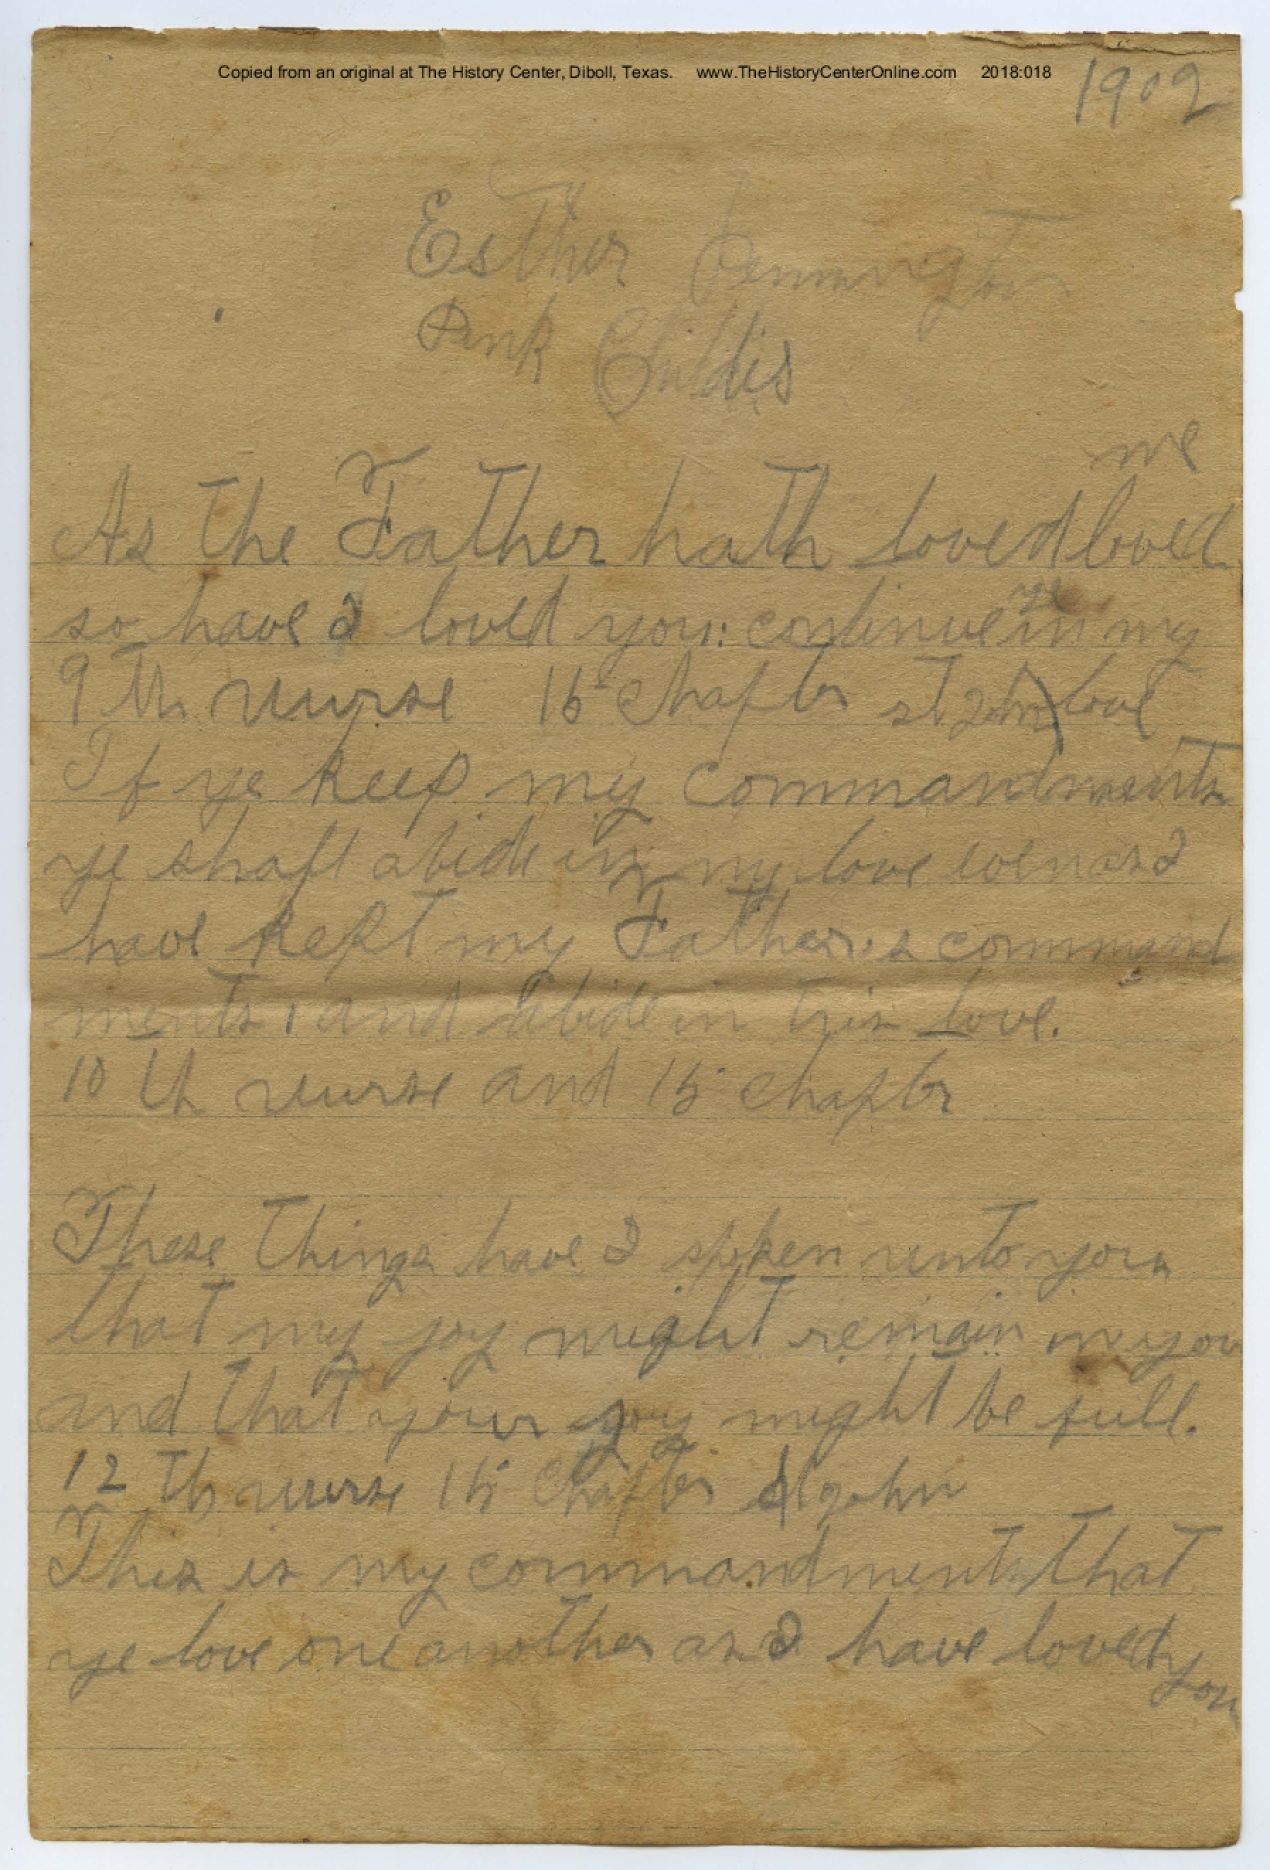 Copied from an original at The History Center, Diboll, Texas. www.TheHistoryCenterOnline.com 2018:018
1902
Esther Pennington
Pink Childis
me
As the Father hath loved loved
so have I loved you: continue ye in my
9 th vurse 15 chapter st John) love
If ye keep my commandments
ye shall abide in my love even as I
have kept my Father's command
ments, and abide in his love.
10 th vurse and 15 chapter
These things have I spoken unto you
that my joy might remain in you
and that your joy might be full.
12 th vurse 15 chapter st john
This is my commandments that
ye love one another as I have loved you